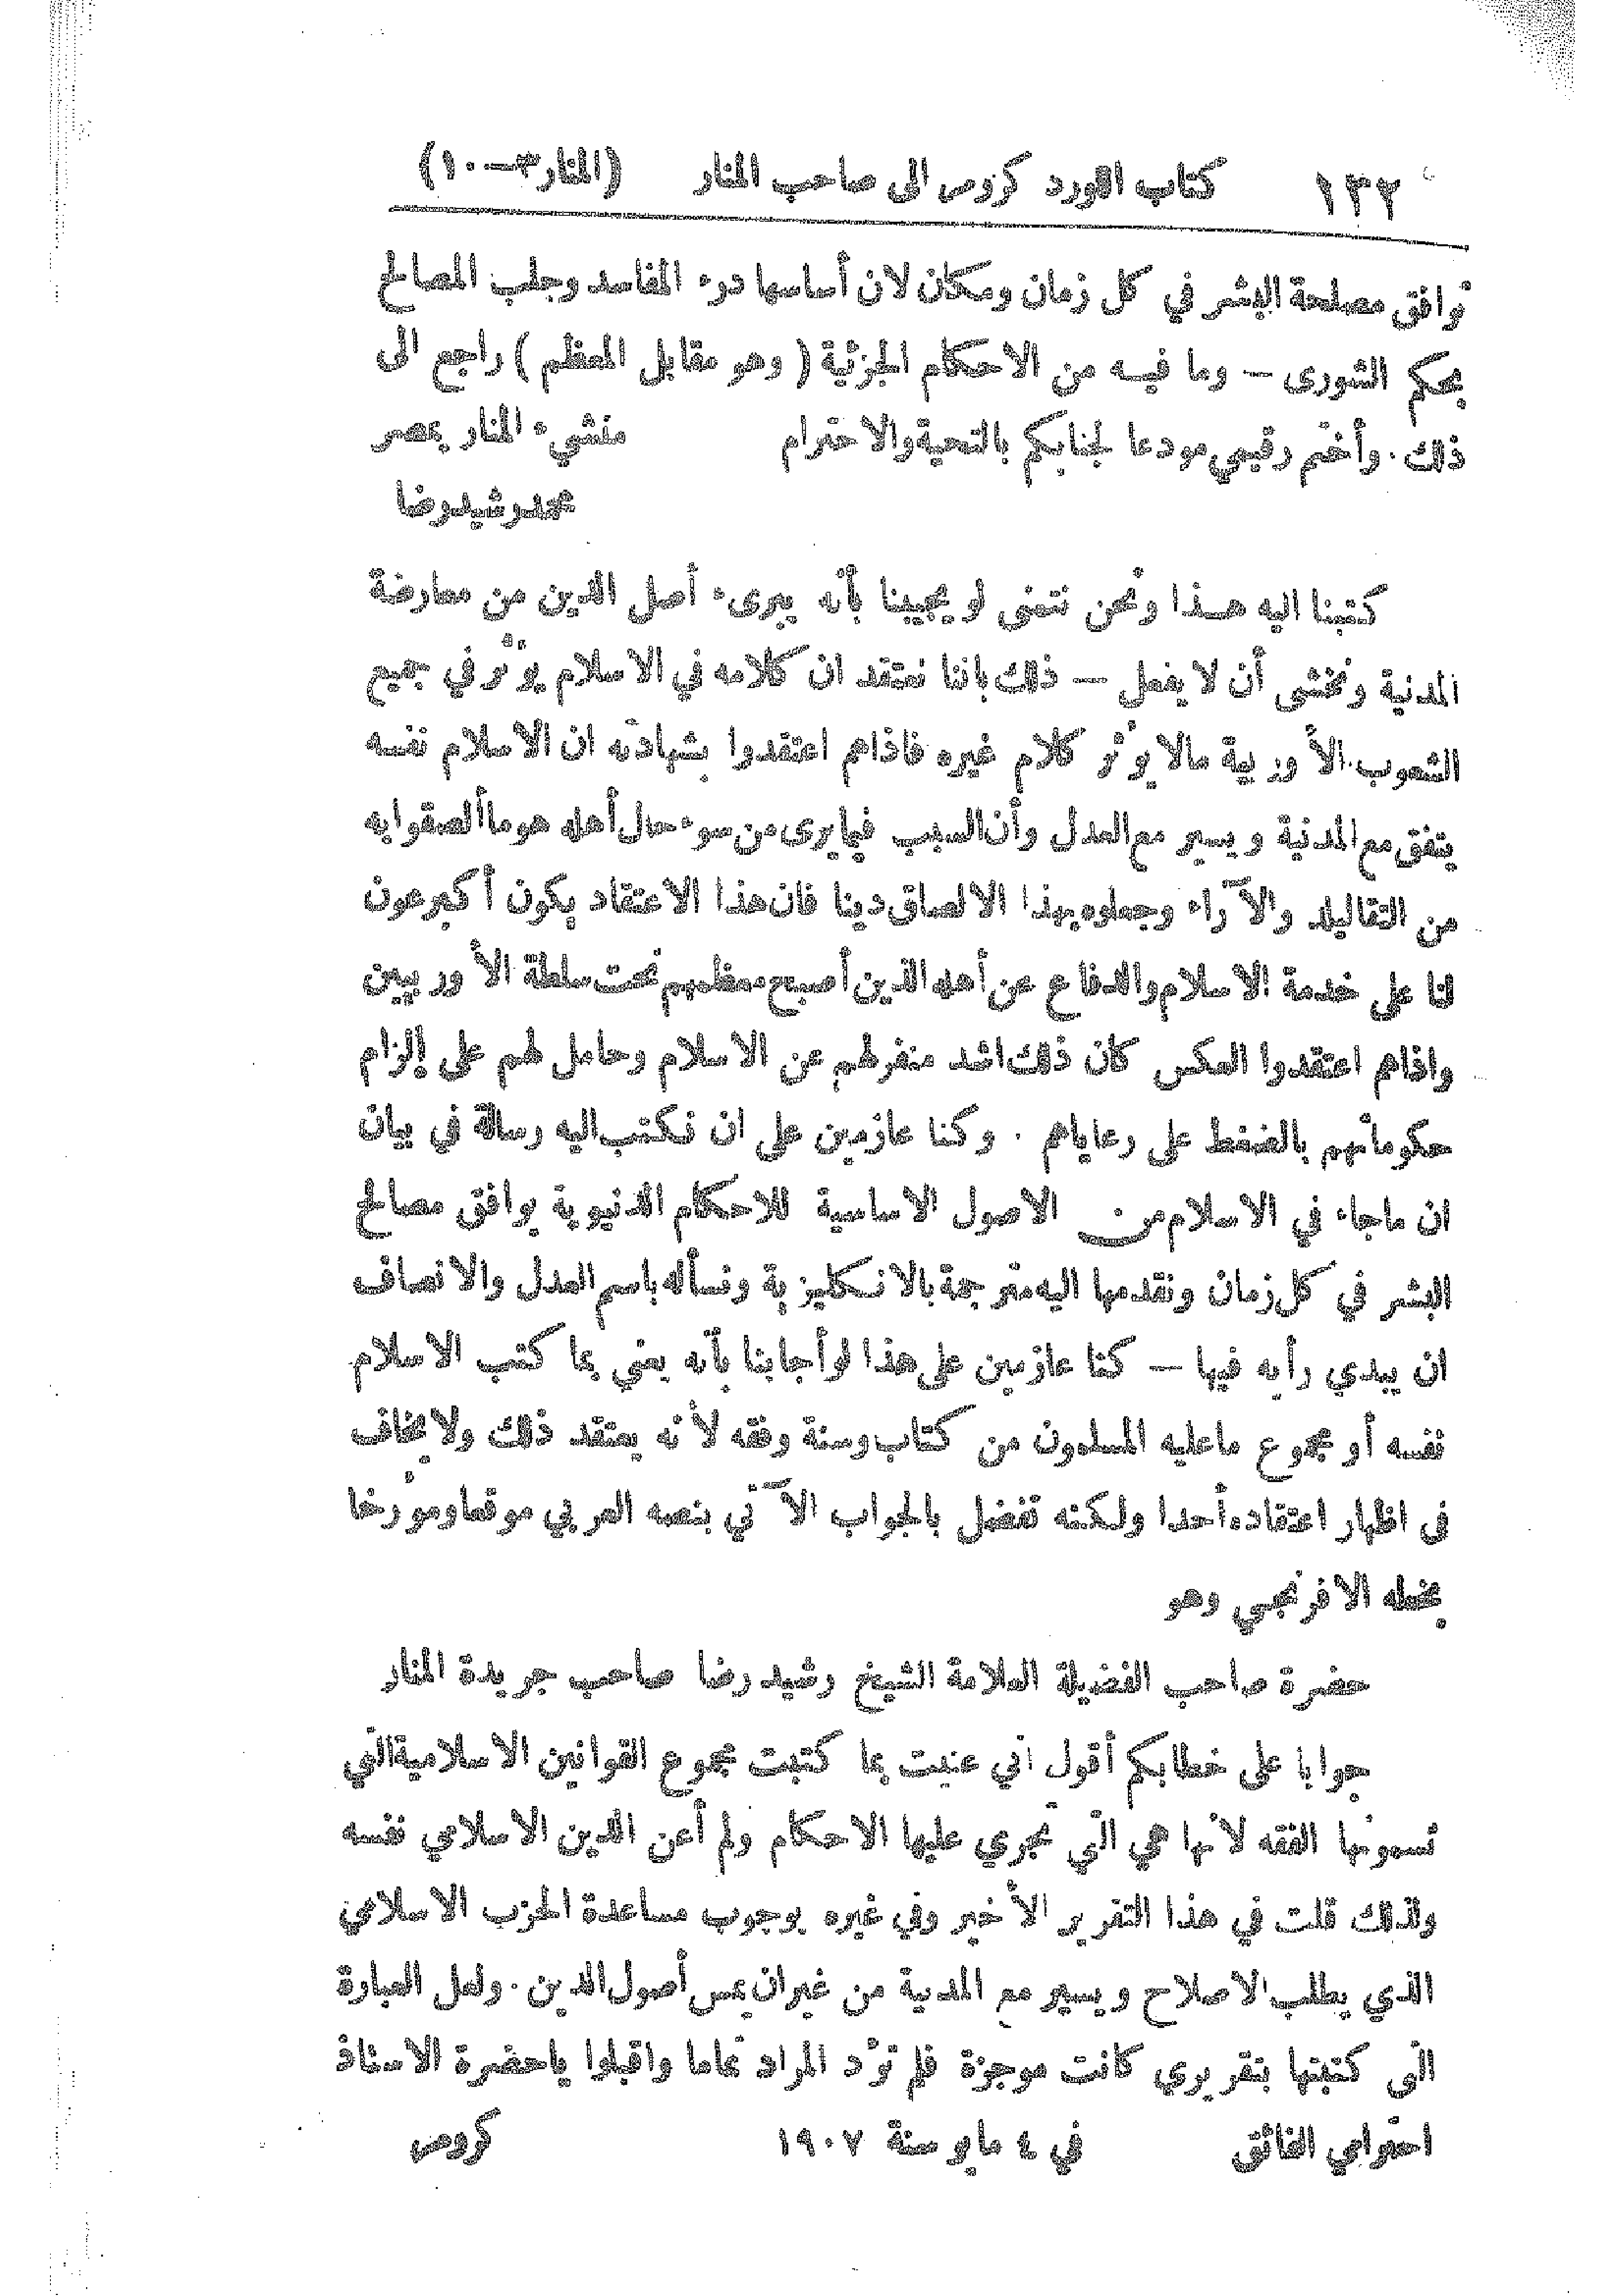 ١٣٢ كتاب اللورد كرومر الى صاحب المنار (المنار٣–١٠)
توافق مصلحة البشر في كل زمان ومكان لان أساسها درء المفاسد وجلب المصالح
بحكم الشورى — وما فيه من الاحكام الجزئية ( وهو مقابل المعظم ) راجع الى
ذلك . وأختم رقيمي مودعا لجنابكم بالتحية والاحترام منشيء المنار بمصر
محمد رشيد رضا
كتبنا اليه هذا ونحن نتمنى لو يجيبنا بأنه يبرىء أصل الدين من معارضة
المدنية ونخشى أن لا يفعل — ذلك باننا نعتقد ان كلامه في الاسلام يؤثر في جميع
الشعوب الأوربية مالا يؤثر كلام غيره فاذاهم اعتقدوا بشهادته ان الاسلام نفسه
يتفق مع المدنية ويسير مع العدل وأن السبب فيما يرى من سوء حال أهله هو ما ألصقوا به
من التقاليد والآراء وجعلوه بهذا الالصاق دينا فان هذا الاعتقاد يكون أكبر عون
لنا على خدمة الاسلام والدفاع عن أهله الذين أصبح معظمهم تحت سلطة الأوربيين
واذاهم اعتقدوا العكس كان ذلك اشد منفر لهم عن الاسلام وحامل لهم على إلزام
حكوماتهم بالضغط على رعاياهم . وكنا عازمين على ان نكتب اليه رسالة في بيان
ان ماجاء في الاسلام من الاصول الاساسية للاحكام الدنيوية يوافق مصالح
البشر في كل زمان ونقدمها اليه مترجمة بالانكليزية ونسأله باسم العدل والانصاف
ان يبدي رأيه فيها — كنا عازمين على هذا لو أجابنا بأنه يعني بما كتب الاسلام
نفسه أو مجموع ماعليه المسلمون من كتاب وسنة وفقه لأنه يعتقد ذلك ولا يخاف
فى اظهار اعتقاده أحدا ولكنه تفضل بالجواب الآتي بنصه العربي موقعا ومؤرخا
بخطه الافرنجي وهو
حضرة صاحب الفضيلة العلامة الشيخ رشيد رضا صاحب جريدة المنار
جوابا على خطابكم أقول اني عنيت بما كتبت مجموع القوانين الاسلامية التي
تسمونها الفقه لانها هي التي تجري عليها الاحكام ولم أعن الدين الاسلامي نفسه
ولذلك قلت في هذا التقرير الأخير وفي غيره بوجوب مساعدة الحزب الاسلامي
الذي يطلب الاصلاح ويسير مع المدنية من غير ان يمس أصول الدين . ولعل العبارة
التى كتبتها بتقريري كانت موجزة فلم تؤد المراد تماما واقبلوا ياحضرة الاستاذ
احترامي الفائق في ٤ مايو سنة ١٩٠٧ كرومر